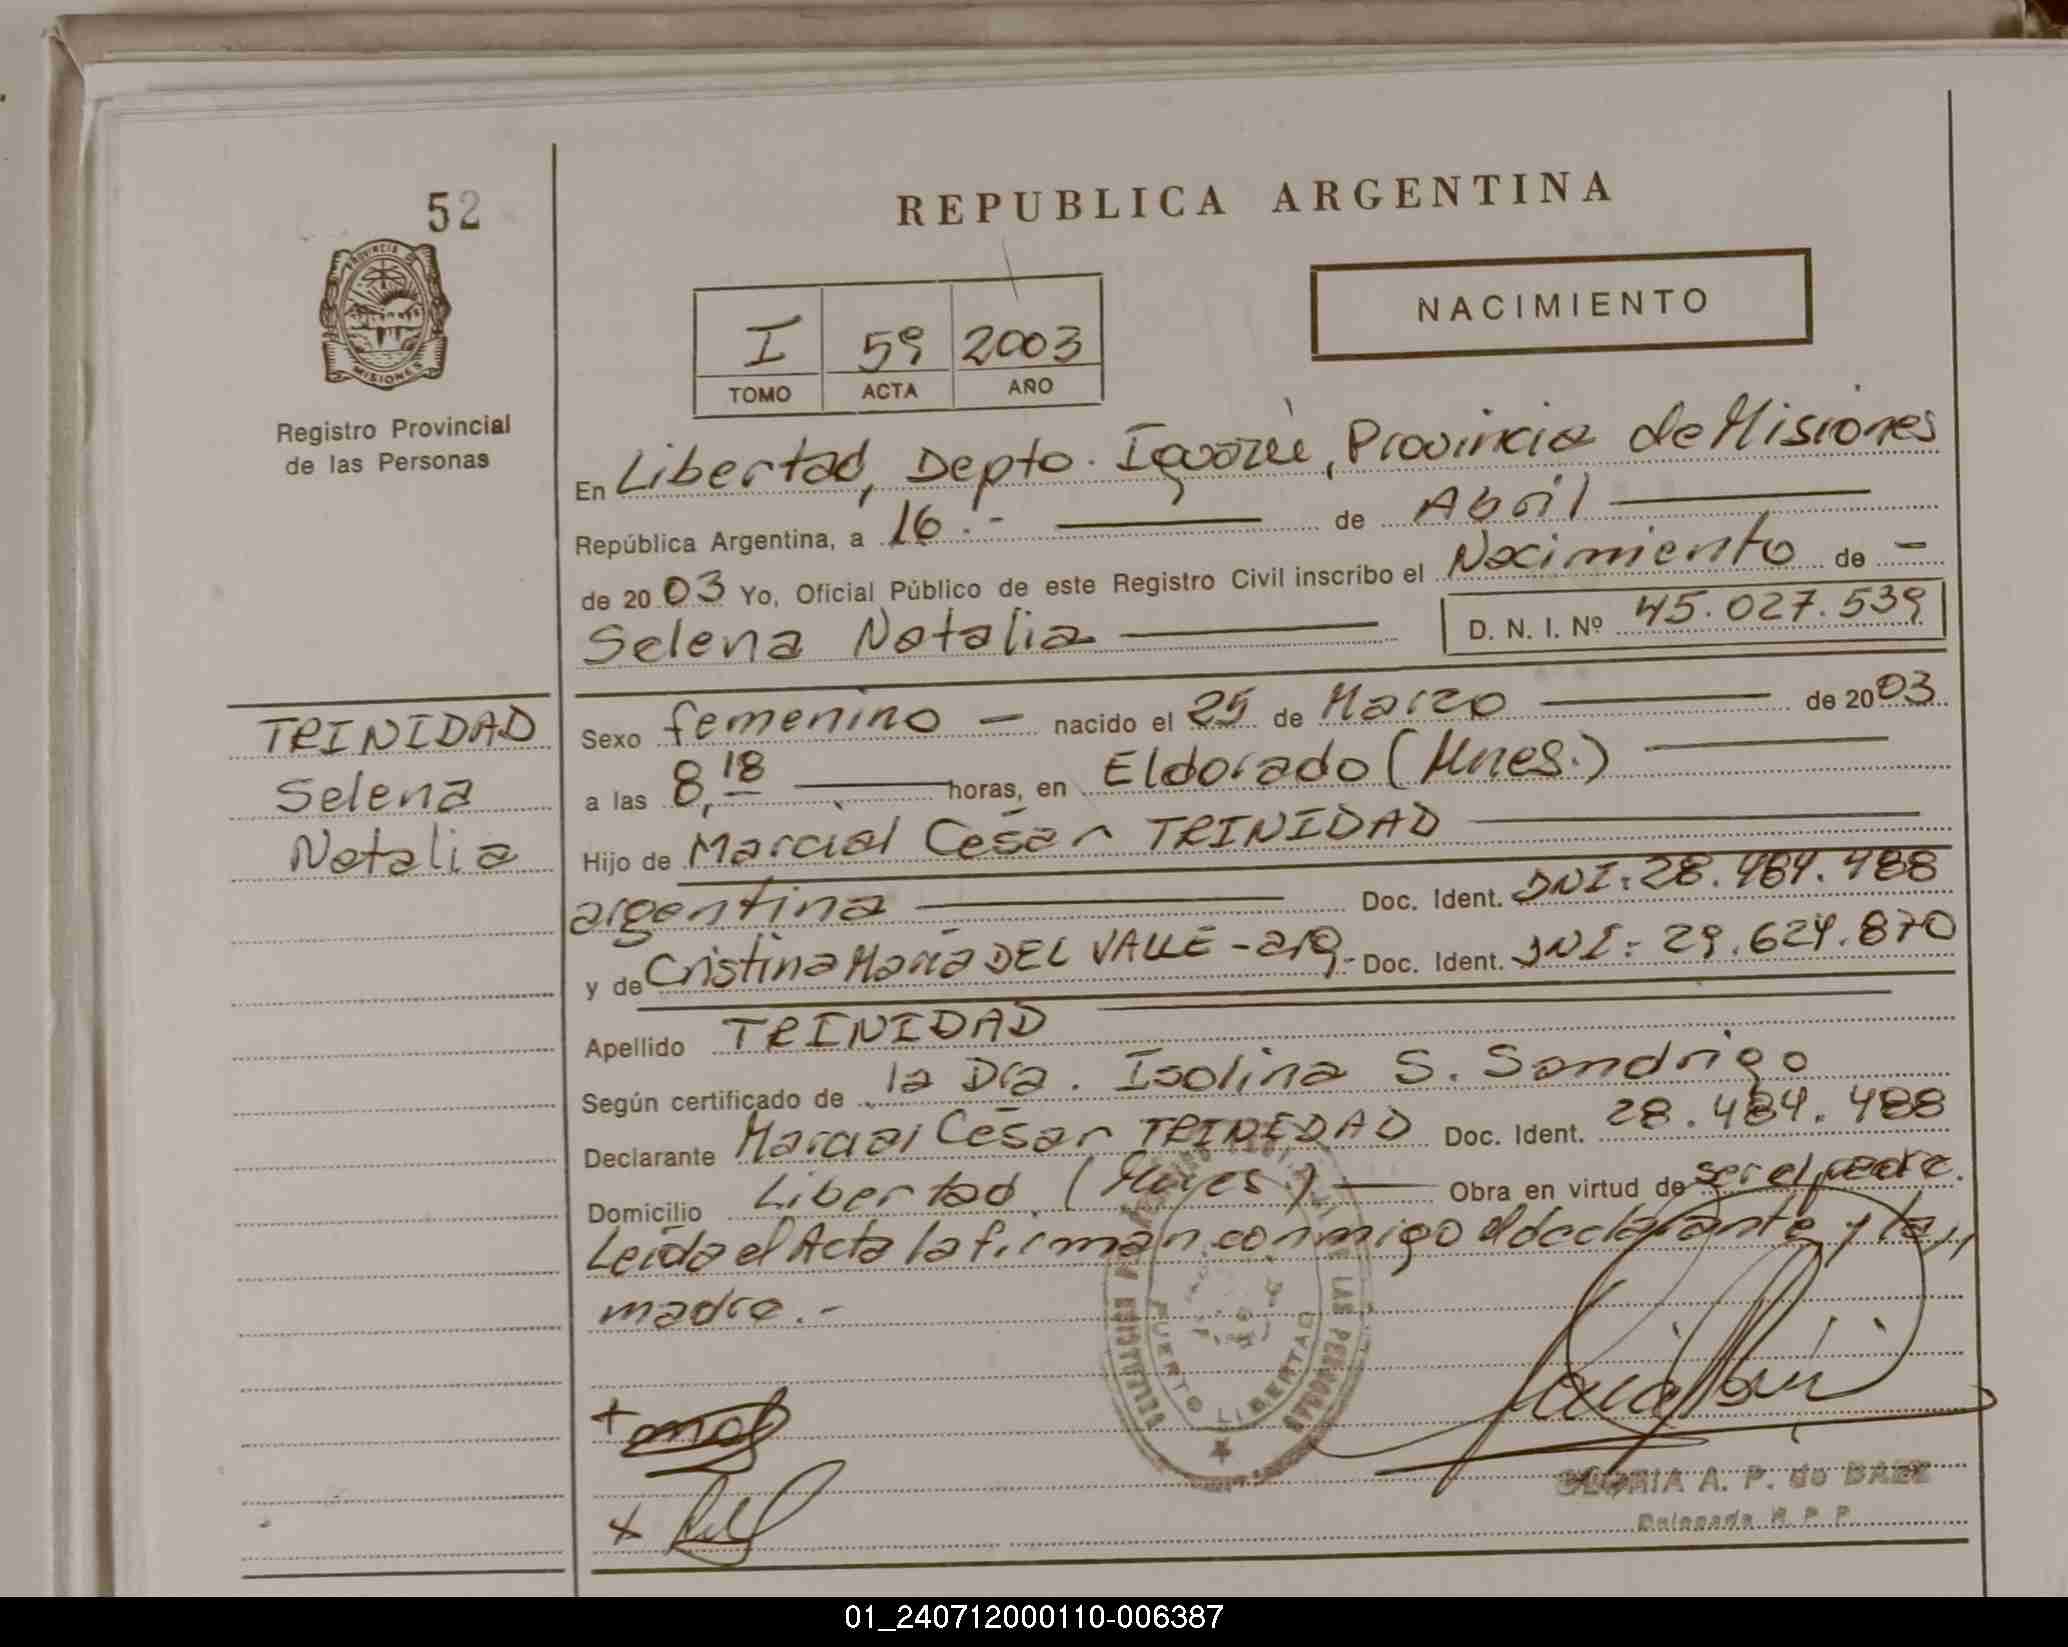 52
PROVINCIA DE
MISIONES
Registro Provincial
de las Personas
REPUBLICA ARGENTINA
NACIMIENTO
I 59 2003
TOMO ACTA AÑO
En Libertad, Depto. Iguazú, Provincia de Misiones
República Argentina, a 16.- de Abril
de 2003 Yo, Oficial Público de este Registro Civil inscribo el Nacimiento de -
Selena Natalia D. N. I. Nº 45.027.539
TRINIDAD
Selena
Natalia
Sexo femenino — nacido el 25 de Marzo de 2003
a las 8,18 horas, en Eldorado (Mnes.)
Hijo de Marcial César TRINIDAD
argentina Doc. Ident. DNI: 28.484.488
y de Cristina María DEL VALLE - arg.- Doc. Ident. DNI: 29.624.870
Apellido TRINIDAD
Según certificado de la Dra. Isolina S. Sandrigo
Declarante Marcial César TRINIDAD Doc. Ident. 28.484.488
Domicilio Libertad (Mnes) Obra en virtud de ser el padre.
Leída el Acta la firman conmigo el declarante y la
madre.-
PUERTO LIBERTAD
LAS PERSONAS
GLORIA A. P. de BAEZ
Delegada R. P. P.
01_240712000110-006387